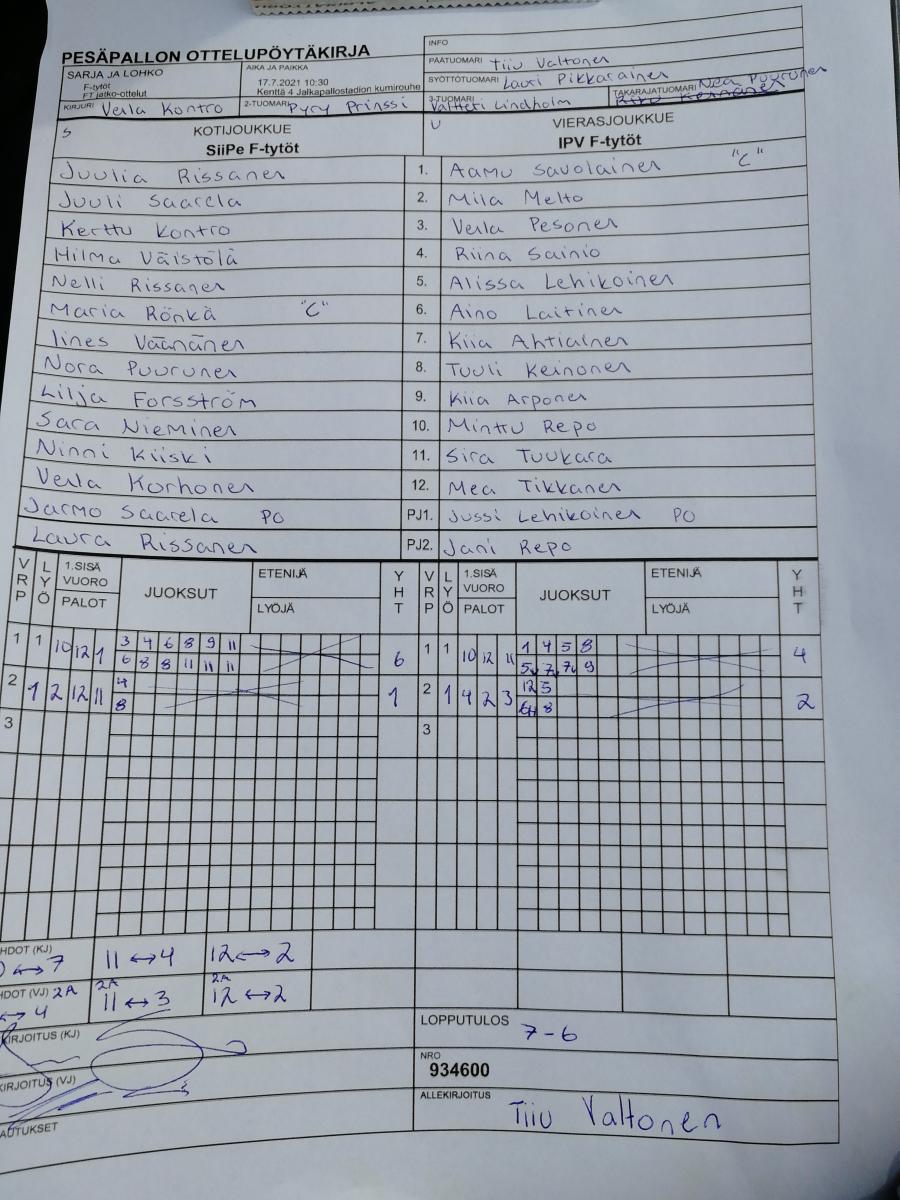 PESÄPALLON OTTELUPÖYTÄKIRJA
INFO
SARJA JA LOHKO
F-tytöt
FT jatko-ottelut
AIKA JA PAIKKA
17.7.2021 10:30
Kenttä 4 Jalkapallostadion kumirouhe
PÄÄTUOMARI Tiiu Valtonen
SYÖTTÖTUOMARI Lauri Pikkarainen
KIRJURI Veila Kontro
2-TUOMARI Pyry Prinssi
3-TUOMARI Valtteri Lindholm
TAKARAJATUOMARI Nea Puurunen
S KOTIJOUKKUE
SiiPe F-tytöt
U VIERASJOUKKUE
IPV F-tytöt
Juulia Rissanen 1. Aamu Savolainen "C"
Juuli Saarela 2. Mila Melto
Kerttu Kontro 3. Veila Pesonen
Hilma Väistölä 4. Riina Sainio
Nelli Rissanen 5. Alissa Lehikoinen
Maria Rönkä "C" 6. Aino Laitinen
Iines Väänänen 7. Kiia Ahtiainen
Nora Puurunen 8. Tuuli Keinonen
Lilja Forsström 9. Kiia Arponen
Sara Nieminen 10. Minttu Repo
Ninni Kiiski 11. Sira Tuukara
Veila Korhonen 12. Mea Tikkanen
Jarmo Saarela PO PJ1. Jussi Lehikoinen PO
Laura Rissanen PJ2. Jani Repo
VRP LYÖ 1.SISÄ VUORO PALOT JUOKSUT ETENIJÄ LYÖJÄ YHT VRP LYÖ 1.SISÄ VUORO PALOT JUOKSUT ETENIJÄ LYÖJÄ YHT
1 1 10 12 1 3 4 6 8 9 11 6 1 1 10 12 11 1 4 5 8 4
6 8 8 11 11 11 5 7 7 9
2 1 2 12 11 4 1 2 1 4 2 3 12 5 2
8 8
3 3
HDOT (KJ) 7 11 ↔ 4 12 ↔ 2
HDOT (VJ) 2A 4 2A 11 ↔ 3 2A 12 ↔ 2
KIRJOITUS (KJ)
LOPPUTULOS 7-6
KIRJOITUS (VJ)
NRO
934600
AUTUKSET
ALLEKIRJOITUS Tiiu Valtonen